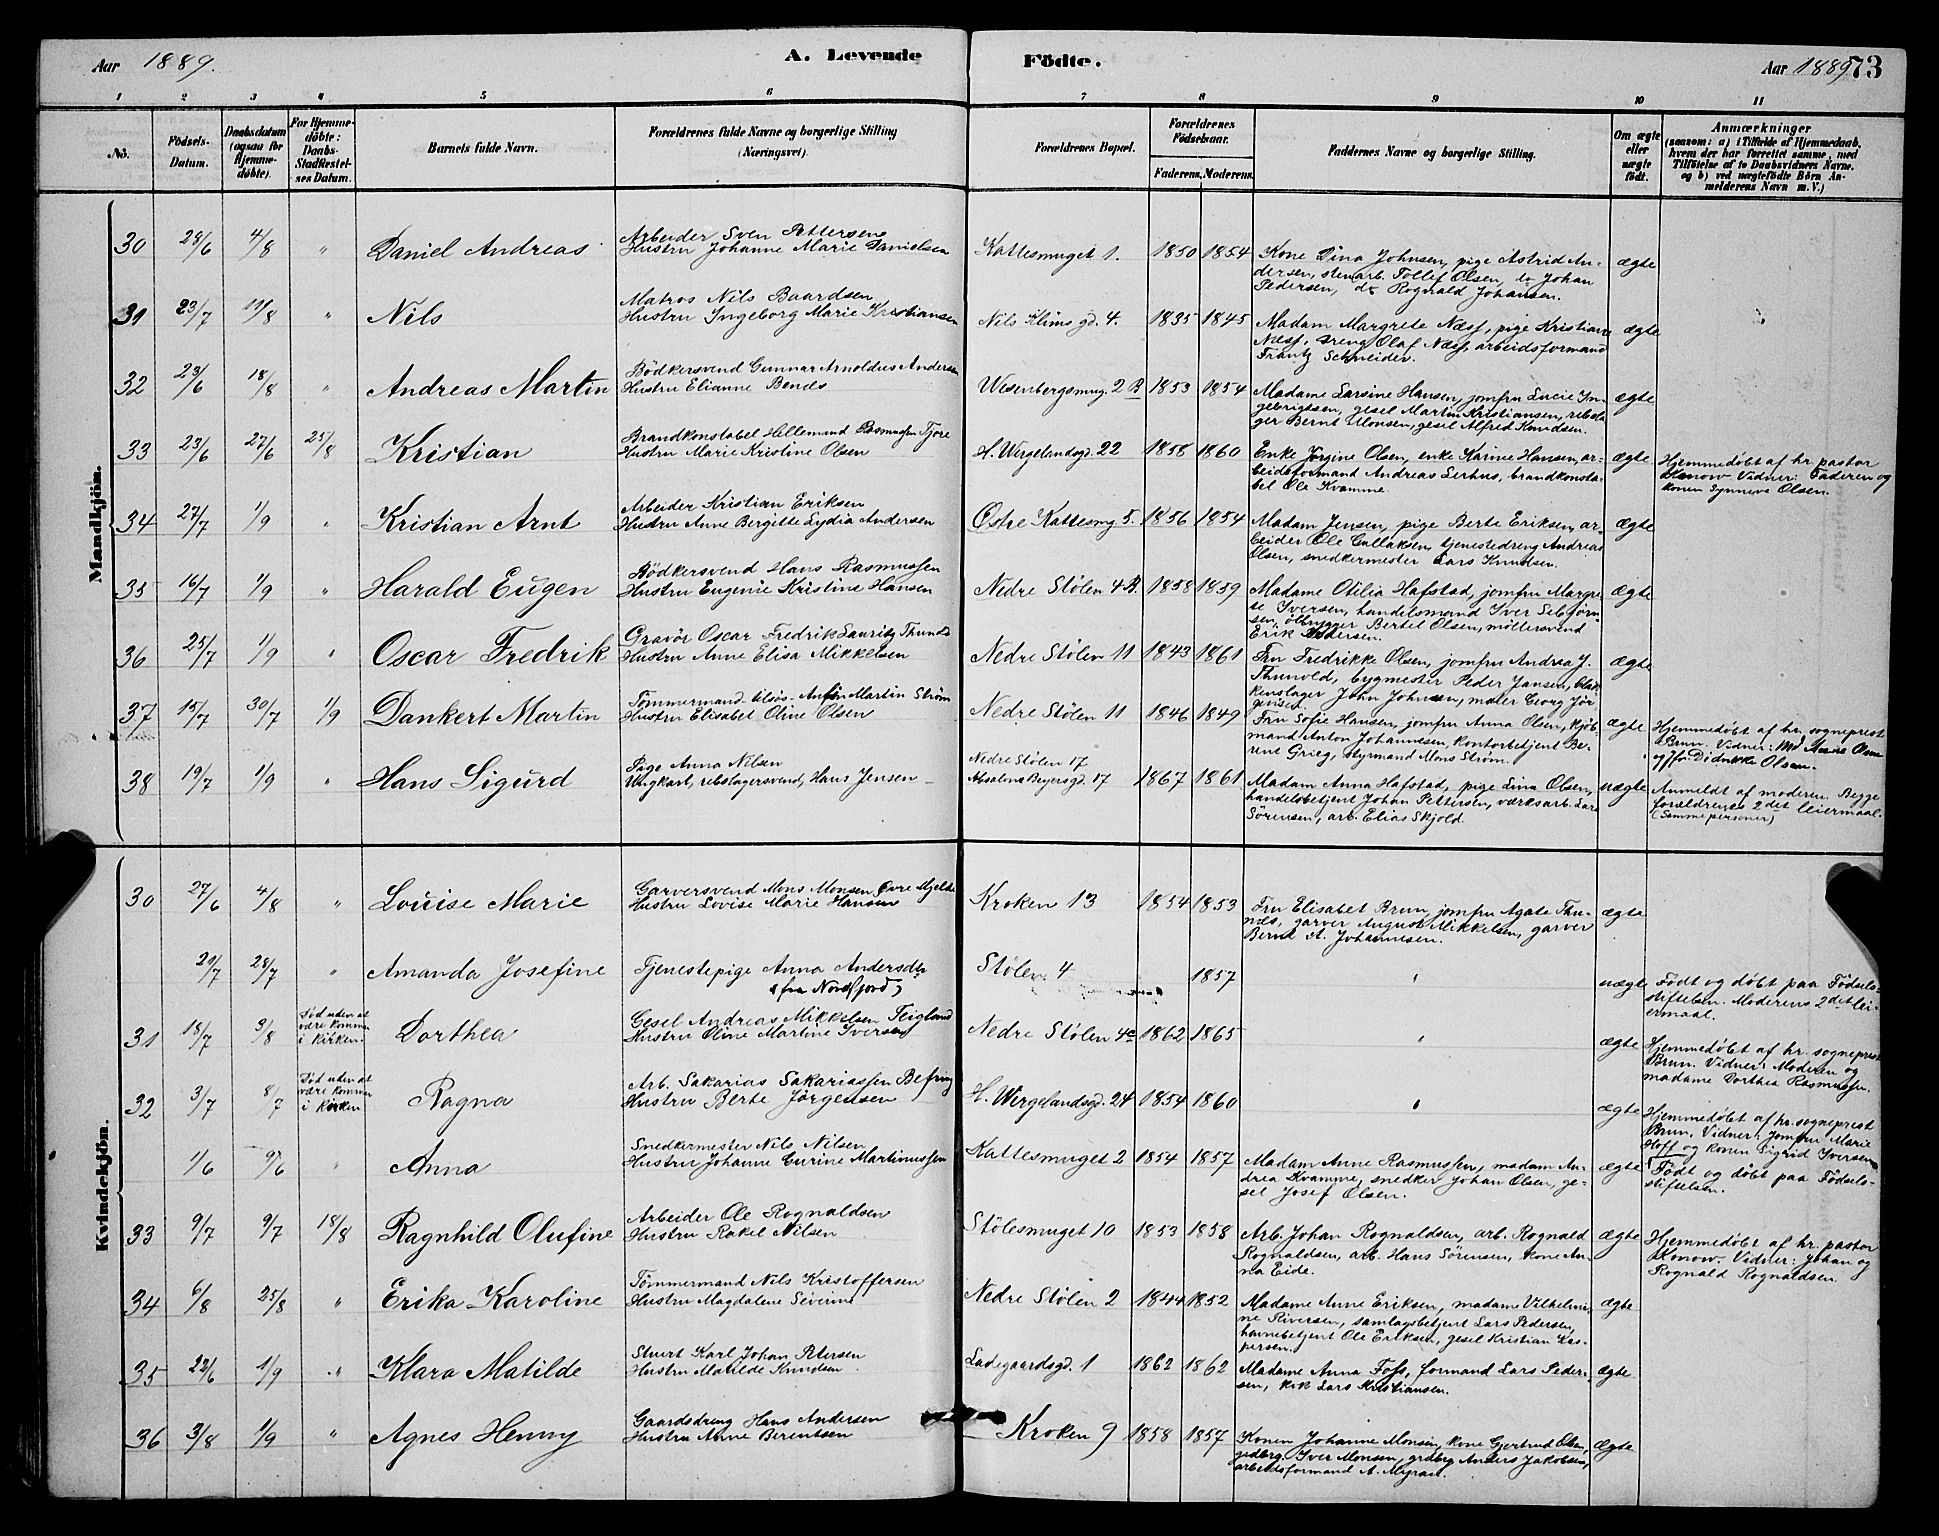 Aar 1889.
A. Levende
Födte.
Aar 1889
73
1 2 3 4 5 6 7 8 9 10 11
No.
Födsels-Datum.
Daabsdatum (ogsaa for Hjemme-döbte).
For Hjemme-döbte: Daabs-Stadfæstel-ses Datum.
Barnets fulde Navn.
Forældrenes fulde Navne og borgerlige Stilling (Næringsvei).
Forældrenes Bopæl.
Forældrenes Födselsaar.
Faderens. Moderens.
Faddernes Navne og borgerlige Stilling.
Om ægte eller uægte födt.
Anmærkninger
(saasom: a) i Tilfælde af Hjemmedaab,
hvem der har forrettet samme, med
Tilföielse af to Daabsvidners Navne.
og b) ved uægtefödte Börn An-
melderens Navn m. V.)
Mandkjön.
30 28/6 4/8 " Daniel Andreas
Arbeider Sven Pettersen
Hustru Johanne Marie Danielsen
Kattesmuget 1. 1850 1854
Kone Dina Johnsen, pige Astrid An-
dersen, stenarb. Tollef Olsen, do Johan
Pedersen, do Rognald Johansen.
ægte
31 23/7 11/8 " Nils
Matros Nils Baardsen
Hustru Ingeborg Marie Kristiansen
Nils Klims gd. 4. 1835 1845
Madam Margrete Næss, pige Kristiane
Næss, dreng Olaf Næss, arbeidsformand
Frantz Schneider.
ægte
32 23/6 18/8 " Andreas Martin
Bödkersvend Gunnar Arnoldus Andersen
Hustru Elianne Bends
Wesenbergsmug. 2 B 1853 1854
Madame Larsine Hansen, jomfru Lucie In-
gebrigtsen, gesel Martin Kristiansen, rebsla-
ger Bernt Monsen, gesel Alfred Knudsen.
ægte
33 23/6 27/6 25/8 Kristian
Brandkonstabel Hellemand Rasmussen Tjore
Hustru Marie Kristine Olsen
H. Wergelandsgd. 22 1858 1860
Enke Jörgine Olsen, enke Karine Hansen, ar-
beidsformand Andreas Lerhus, brandkonsta-
bel Ole Kvamme.
ægte
Hjemmedöbt af hr. pastor
Konow. Vidner: Faderen og
konen Synneva Olsen.
34 27/7 1/9 " Kristian Arnt
Arbeider Kristian Eriksen
Hustru Anne Bergitte Lydia Andersen
Östre Kattesmg 5. 1856 1854
Madam Jensen, pige Berte Eriksen, ar-
beider Ole Gullaksen, tjenestedreng Andreas
Olsen, snedkermester Lars Knudsen.
ægte
35 16/7 1/9 " Harald Eugen
Bödkersvend Hans Rasmussen
Hustru Eugenie Kristine Hansen
Nedre Stölen 4 B. 1858 1859
Madame Otilia Hafstad, jomfru Margre-
te Iversen, handelsmand Iver Sebjörn-
sen, ölbrygger Bertel Olsen, möllersvend
Erik Pedersen.
ægte
36 25/7 1/9 " Oscar Fredrik
Gravör Oscar Fredrik Lauritz Thunold
Hustru Anne Elisa Mikkelsen
Nedre Stölen 11 1843 1861
Fru Fredrikke Olsen, jomfru Andrea J.
Thunold, bygmester Peder Jansen, blok-
kenslager John Johnsen, maler Georg Jör
gensen.
ægte
37 15/7 30/7 1/9 Dankert Martin
Tömmermand Martin Ström
Hustru Elisabet Oline Olsen
Nedre Stölen 11 1846 1849
Fru Sofie Hansen, jomfru Anna Olsen, kjöb-
mand Anton Johannesen, kontorbetjent Be-
rent Grieg, styrmand Mons Ström.
ægte
Hjemmedöbt af hr. sogneprest
Brun. Vidner: Md Anne Olsen
og jfr. Didrikke Olsen.
38 19/7 1/9 " Hans Sigurd
Pige Anna Nilsen
Ungkarl, rebslagersvend, Hans Jensen
Nedre Stölen 17
Absalons Beyersgd. 17 1867 1861
Madam Anna Hafstad, pige Lina Olsen,
handelsbetjent Johan Pettersen, værksarb. Lars
Sörensen, arb. Elias Skjold.
uægte
Anmeldt af moderen. Begge
forældrenes 2det leiermaal.
(Samme personer)
Kvindekjön.
30 27/6 4/8 " Louise Marie
Garversvend Mons Monsen Övre Mjelde
Hustru Lovise Marie Hansen
Kroken 13 1854 1853
Fru Elisabet Brun, jomfru Agate Thu-
næs, garver August Mikkelsen, garver
Bernt A. Johannesen.
ægte
20/7 28/7 " Amanda Josefine
Tjenestepige Anna Andersdtr
(fra Nordfjord)
Stölen 4 1857 "
uægte
Födt og döbt paa Födsels-
stiftelsen. Moderens 2det lei-
ermaal.
31 18/7 3/8 Död uden at være kommen i kirken. Dorthea
Gesel Andreas Mikkelsen Teigland
Hustru Oline Martine Iversen
Nedre Stölen 4a 1862 1865 "
ægte
Hjemmedöbt af hr. sogneprest
Brun. Vidner: Moderen og
madame Dorthea Rasmussen.
32 3/7 8/7 Död uden at være kommen i kirken Ragna
Arb. Sakarias Sakariassen Befring
Hustru Berte Jörgensen
H. Wergelandsgd. 24 1854 1860 "
ægte
Hjemmedöbt af hr. sogneprest
Brun. Vidner: Jomfru Marie
Hoff og konen Sigrid Iversen
1/6 9/6 " Anna
Snedkermester Nils Nilsen
Hustru Johanne Gurine Martinussen
Kattesmuget 2 1854 1857
Madam Anne Rasmussen, madam An-
drea Kvamme, snedker Johan Olsen, ge-
sel Josef Olsen.
ægte
Födt og döbt paa Födsels-
stiftelsen.
33 9/7 9/7 18/8 Ragnhild Olufine
Arbeider Ole Rognaldsen
Hustru Rakel Nilsen
Stölesmuget 10 1853 1858
Arb. Johan Rognaldsen, arb. Rognald
Rognaldsen, arb. Hans Sörensen, kone An-
na Eide.
ægte
Hjemmedöbt af hr. pastor
Konow. Vidner: Johan og
Rognald Rognaldsen.
34 6/8 25/8 " Erika Karoline
Tömmermand Nils Kristoffersen
Hustru Magdalene Severine
Nedre Stölen 2 1844 1852
Madame Anne Eriksen, madame Vilhelmi-
ne Siversen, samlagsbetjent Lars Pedersen,
havnebetjent Ole Eriksen, gesel Kristian Kas-
persen.
ægte
35 22/6 1/9 " Klara Matilde
Stuert Karl Johan Petersen
Hustru Matilde Knudsen
Ladegaardsgd. 1 1862 1862
Madame Anna Foss, formand Lars Peder-
sen, kok Lars Kristiansen.
ægte
36 3/8 1/9 " Agnes Henny
Gaardsdreng Hans Andersen
Hustru Anne Berentsen
Kroken 9 1858 1857
Konen Johanne Monsen, kone Gjertrud Olsen,
grdbrg. Iver Monsen, grdbrg Anders Jakobsen,
arbeidsformand A. Myrait.
ægte